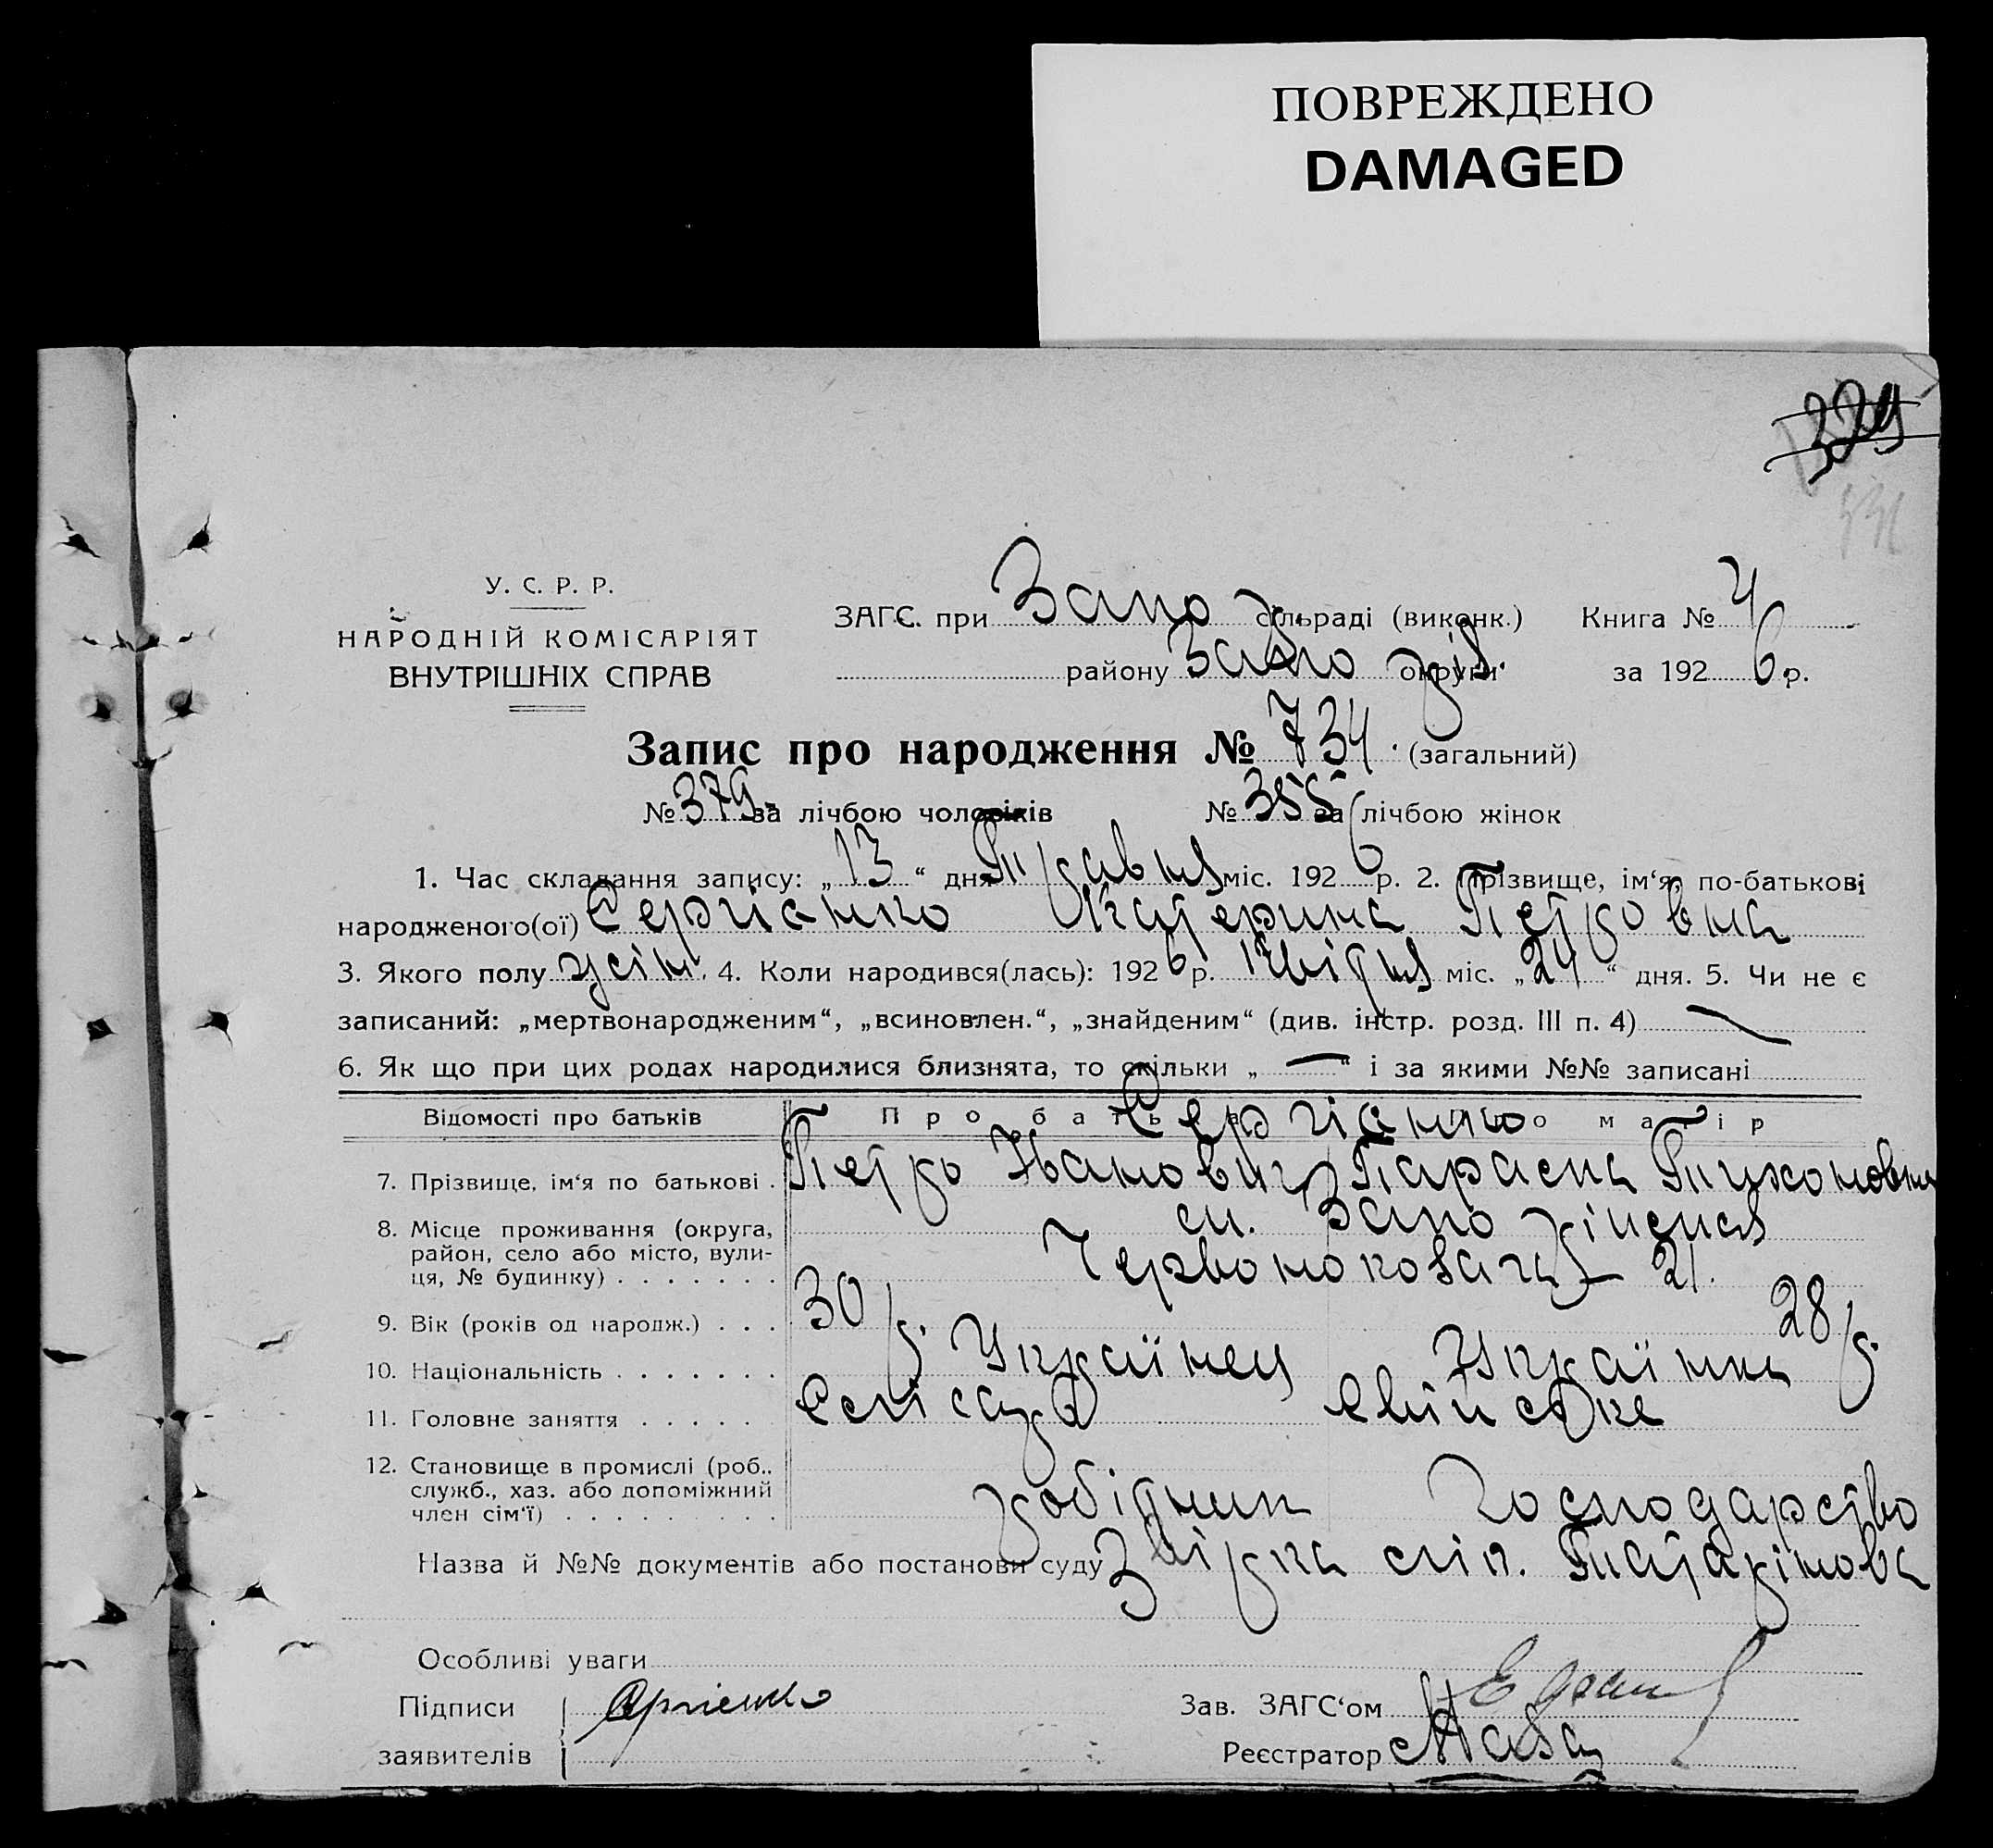 ПОВРЕЖДЕНО
DAMAGED
329
У. С. Р. Р.
НАРОДНІЙ КОМІСАРІЯТ
ВНУТРІШНІХ СПРАВ
ЗАГС. при Запо сільраді (виконк.) Книга № 4
району Запо округи за 1926 р.
Запис про народження № 734. (загальний)
№ 379 за лічбою чоловіків № 355 за лічбою жінок
1. Час складання запису: „13“ дня Травня міс. 1926 р. 2. Прізвище, ім‘я, по-батькові
народженого(ої) Сергіэнко Катерина Петровна
3. Якого полу жін. 4. Коли народився(лась): 1926 р. Квітня міс. „24“ дня. 5. Чи не є
записаний: „мертвонародженим“, „всиновлен.“, „знайденим“ (див. інстр. розд. III п. 4)
6. Як що при цих родах народилися близнята, то скільки „—“ і за якими №№ записані
Відомості про батьків Про батька Про матір
Сергіэнко
7. Прізвище, ім‘я по батькові . Петро Іванович Параска Тихоновна
8. Місце проживання (округа, район, село або місто, вулиця, № будинку) . . . . . . . м. Запоріжжя
Червонокозача 21.
9. Вік (років од народж.) . . . 30 р. 28 р.
10. Національність . . . . . . . Українец Українка
11. Головне заняття . . . . .
12. Становище в промислі (роб., служб., хаз. або допоміжний член сім‘ї) . . . . . . . . . робітник господарство
Назва й №№ документів або постанови суду
Особливі уваги
Підписи
заявителів
Зав. ЗАГС‘ом
Реєстратор